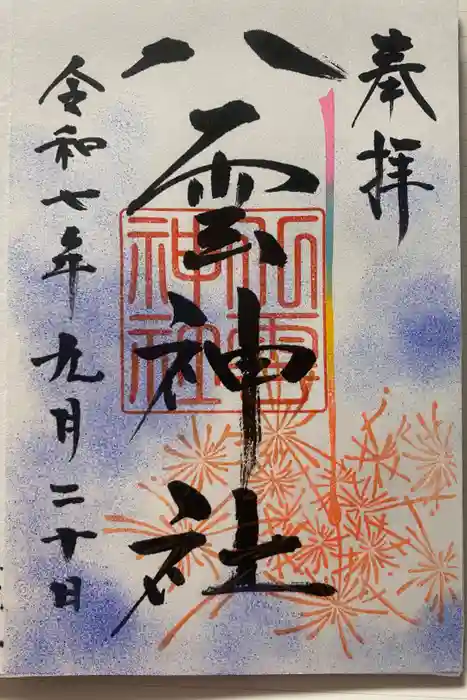 奉拝
八雲神社
八雲神社
令和七年九月二十日